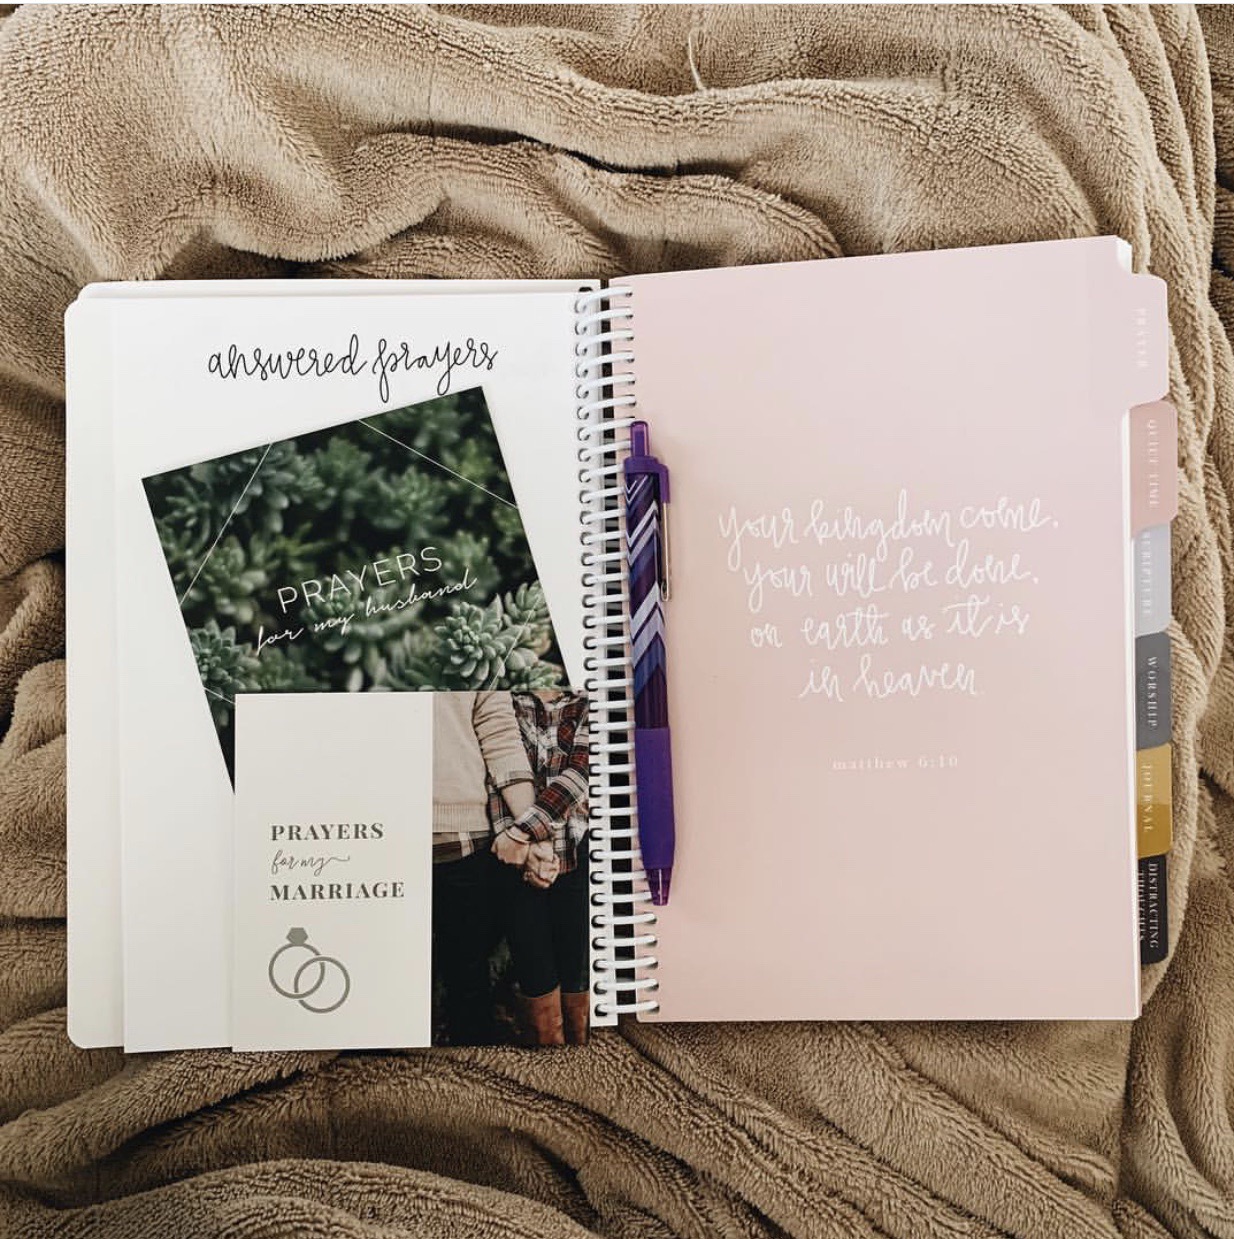 answered prayers
PRAYERS
for my husband
PRAYERS
for my
MARRIAGE
your kingdom come.
your will be done.
on earth as it is
in heaven
matthew 6:10
PRAYER
QUIET TIME
SCRIPTURE
WORSHIP
JOURNAL
DISTRACTING
THOUGHTS